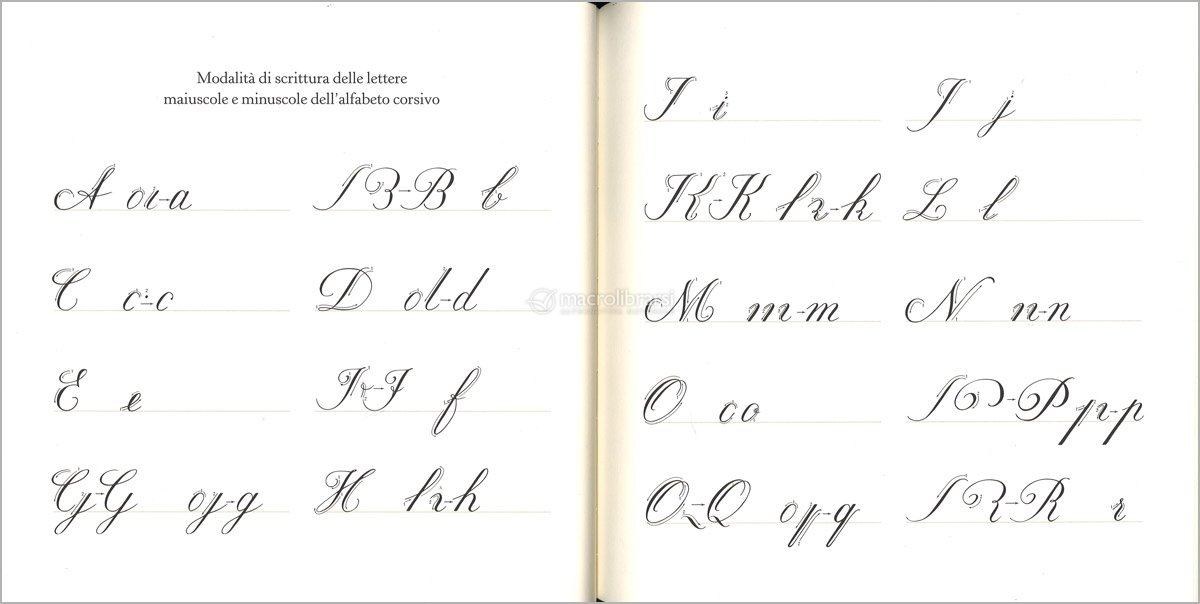 Modalità di scrittura delle lettere
maiuscole e minuscole dell'alfabeto corsivo
A a B b
C c D d
E e F f
G g H h
I i J j
K k L l
M m N n
O o P p
Q q R r
macrolibrarsi